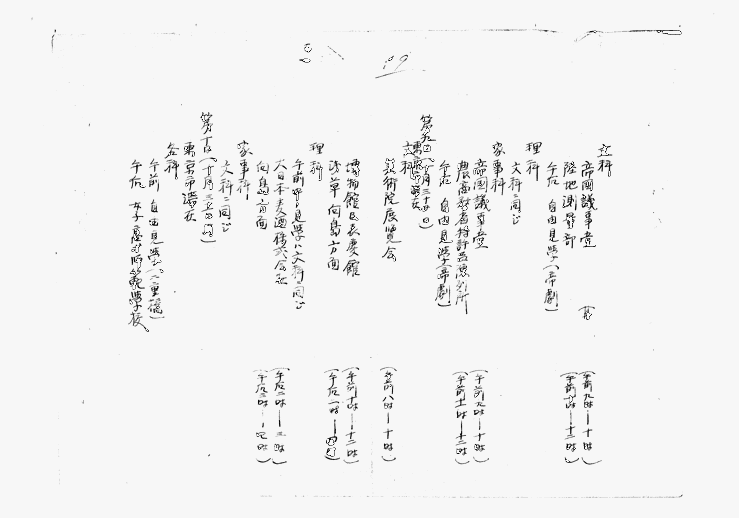 文科
帝國議事堂 (午前九時—十時)
陸地測量部 (午前十時—十二時)
午后 自由見学(帝劇)
理科
文科ニ同ジ
家事科
帝國議事堂 (午前九時—十時)
農商務省特許局陳列所 (午前十一時—十二時)
午后 自由見学(帝劇)
第九日(十月二十四日)
東京市滞在
文科
美術院展覧会 (午前八時—十時)
博物館及表慶館 (午前十時—十二時)
浅草向島方面 (午后一時—四時)
理科
午前中ノ見学ハ文科ニ同ジ
大日本麦酒株式会社 (午后二時—三時)
向島方面 (午后三時—四時)
家事科
文科ニ同ジ
第十日(十月二十五日)
東京市滞在
各科
午前 自由見学(二重橋)
午后 女子高等師範学校